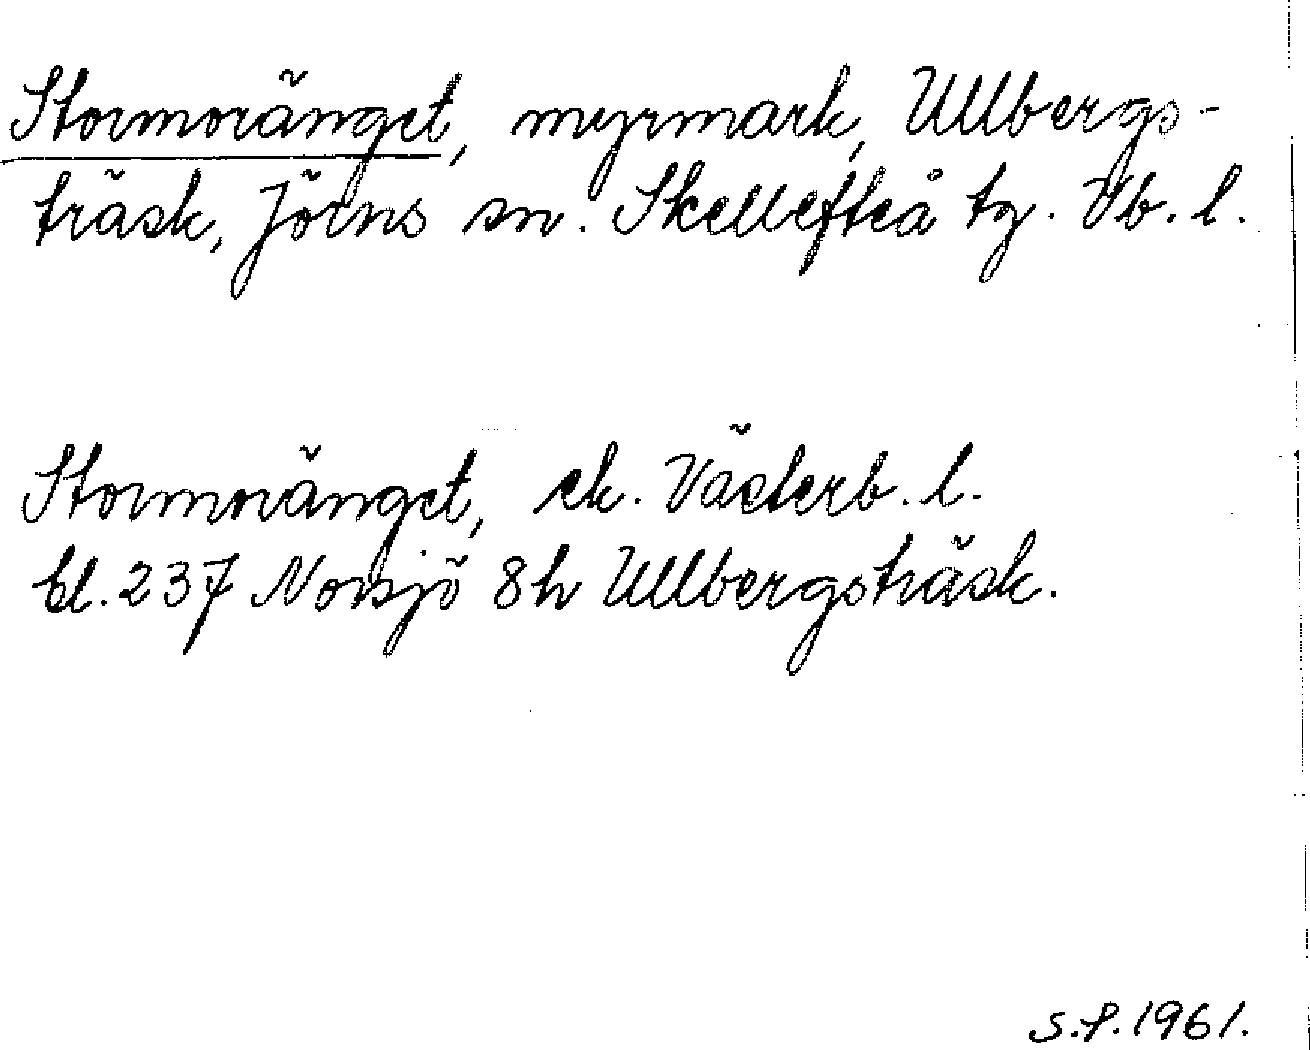 Stormoränget, myrmark, Ullbergs-
träsk, Jörns sn. Skellefteå tg. Vb. l.
Stormoränget, ek. Västerb. l.
bl. 237 Norsjö 8h Ullbergsträsk.
S.P. 1961.